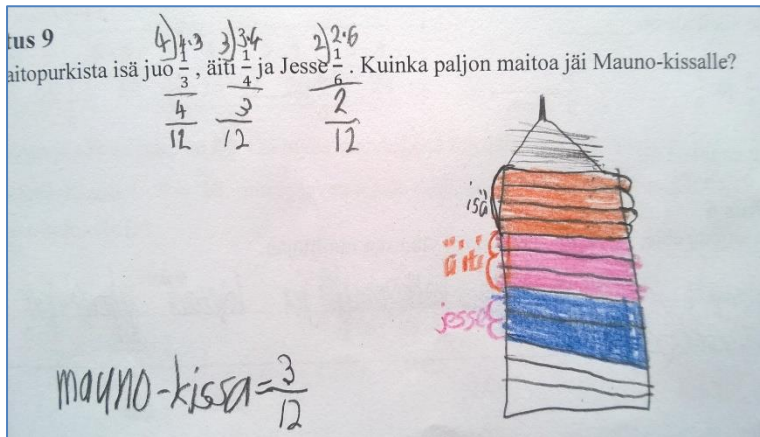 tus 9
4) 4·3 3) 3·4 2) 2·6
aitopurkista isä juo 1/3, äiti 1/4 ja Jesse 1/6. Kuinka paljon maitoa jäi Mauno-kissalle?
4/12 3/12 2/12
isä
äiti
jesse
mauno-kissa=3/12